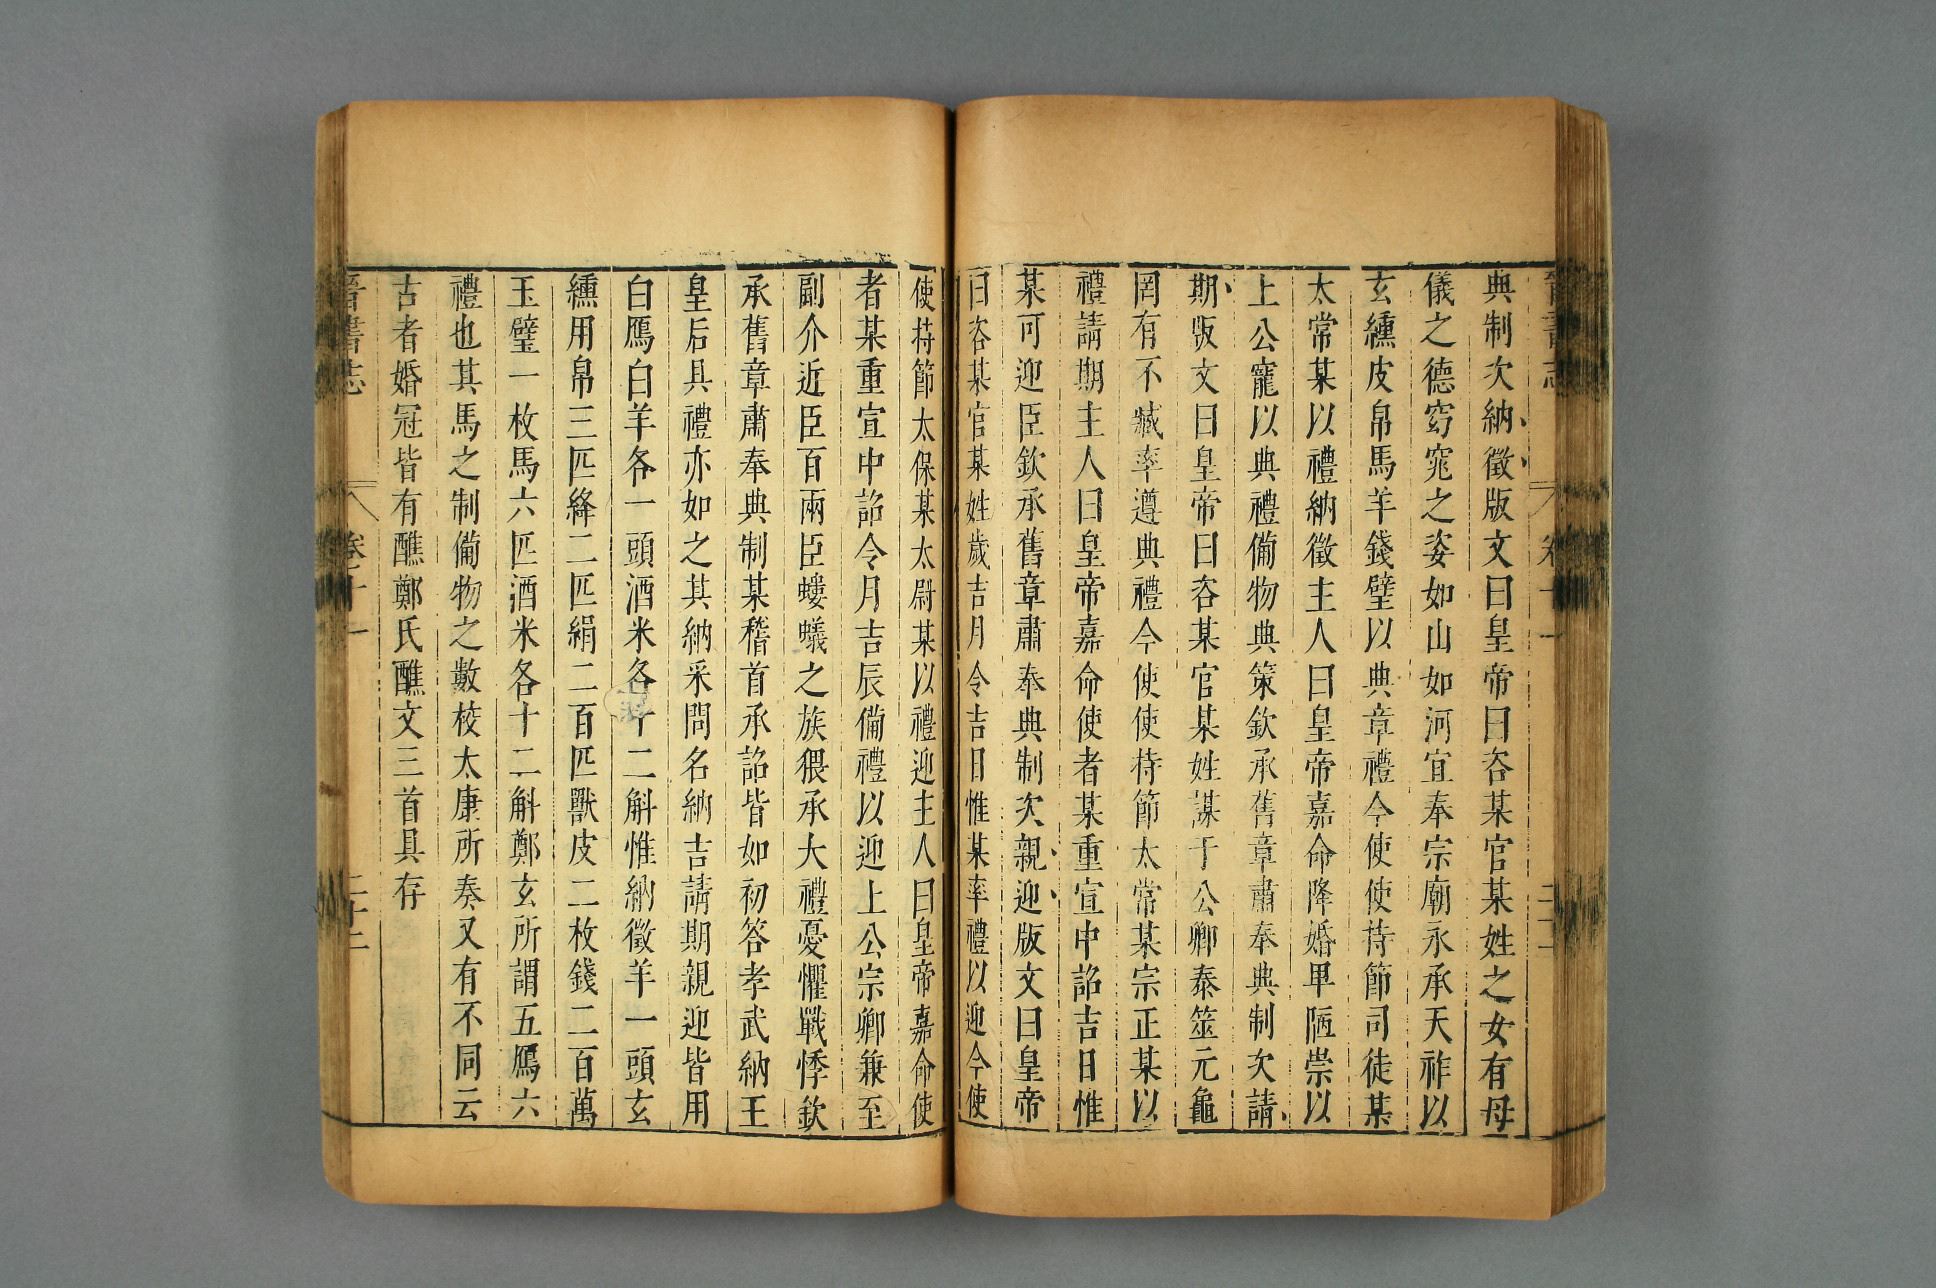 晉書志 卷十一 二十一
典制次納徵版文曰皇帝曰咨某官某姓之女有母
儀之德窈窕之姿如山如河宜奉宗廟永承天祚以
玄纁皮帛馬羊錢璧以典章禮今使使持節司徒某
太常某以禮納徵主人曰皇帝嘉命降婚卑陋崇以
上公寵以典禮備物典策欽承舊章肅奉典制次請
期版文曰皇帝曰咨某官某姓謀于公卿泰筮元龜
罔有不臧率遵典禮今使使持節太常某宗正某以
禮請期主人曰皇帝嘉命使者某重宣中詔吉日惟
某可迎臣欽承舊章肅奉典制次親迎版文曰皇帝
曰咨某官某姓歲吉月令吉日惟某率禮以迎今使
使持節太保某太尉某以禮迎主人曰皇帝嘉命使
者某重宣中詔令月吉辰備禮以迎上公宗卿兼至
副介近臣百兩臣螻蟻之族猥承大禮憂懼戰悸欽
承舊章肅奉典制某稽首承詔皆如初答孝武納王
皇后具禮亦如之其納采問名納吉請期親迎皆用
白鴈白羊各一頭酒米各十二斛惟納徵羊一頭玄
纁用帛三匹絳二匹絹二百匹獸皮二枚錢二百萬
玉璧一枚馬六匹酒米各十二斛鄭玄所謂五鴈六
禮也其馬之制備物之數校太康所奏又有不同云
古者婚冠皆有醮鄭氏醮文三首具存
晉書志 卷十一 二十二